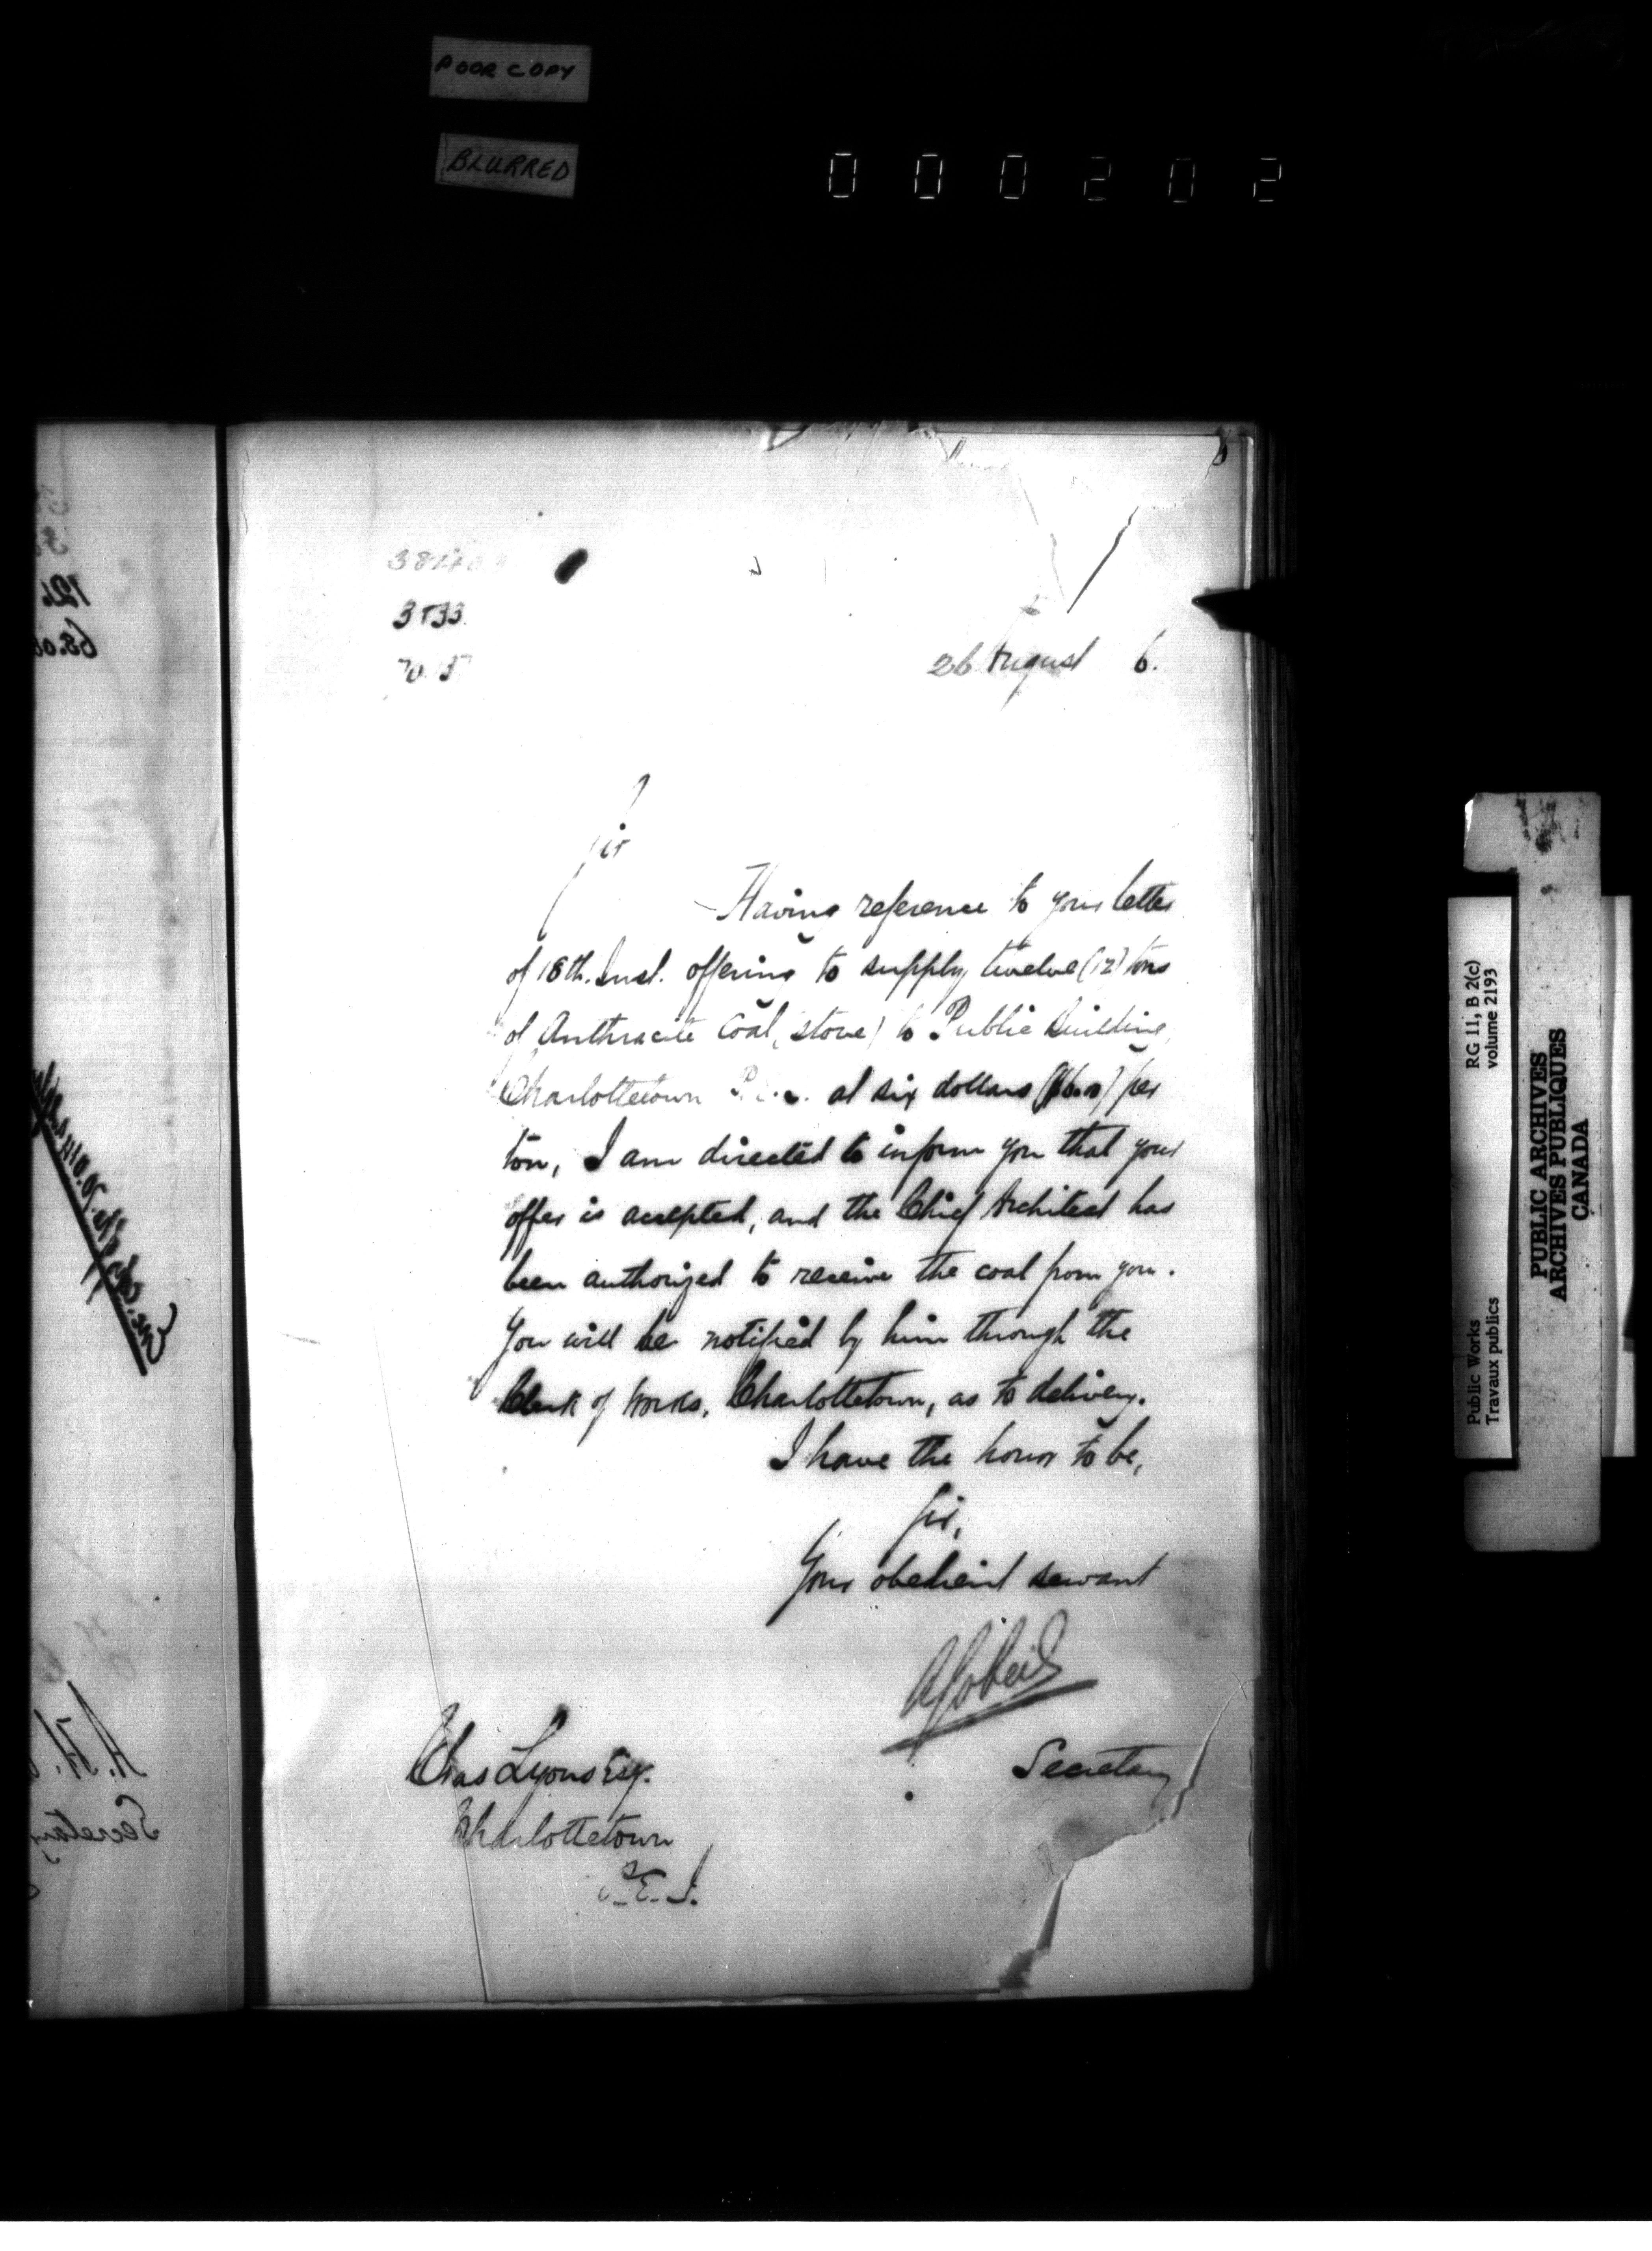 POOR COPY
BLURRED
000202
8
3533
26 August 6.
Sir
Having reference to your letter
of 18th. Inst. offering to supply twelve (12) tons
of Anthracite Coal, (stove) to Public Building,
Charlottetown at six dollars ($6.00) per
ton, I am directed to inform you that your
offer is accepted, and the Chief Architect has
been authorized to receive the coal from you.
You will be notified by him through the
Clerk of Works, Charlottetown, as to delivery.
I have the honor to be,
Sir,
Your obedient servant
Secretary
Chas Lyons Esq.
Charlottetown
P.E.I.
A.H.
Secretary
RG 11, B 2(c)
volume 2193
Public Works
Travaux publics
PUBLIC ARCHIVES
ARCHIVES PUBLIQUES
CANADA